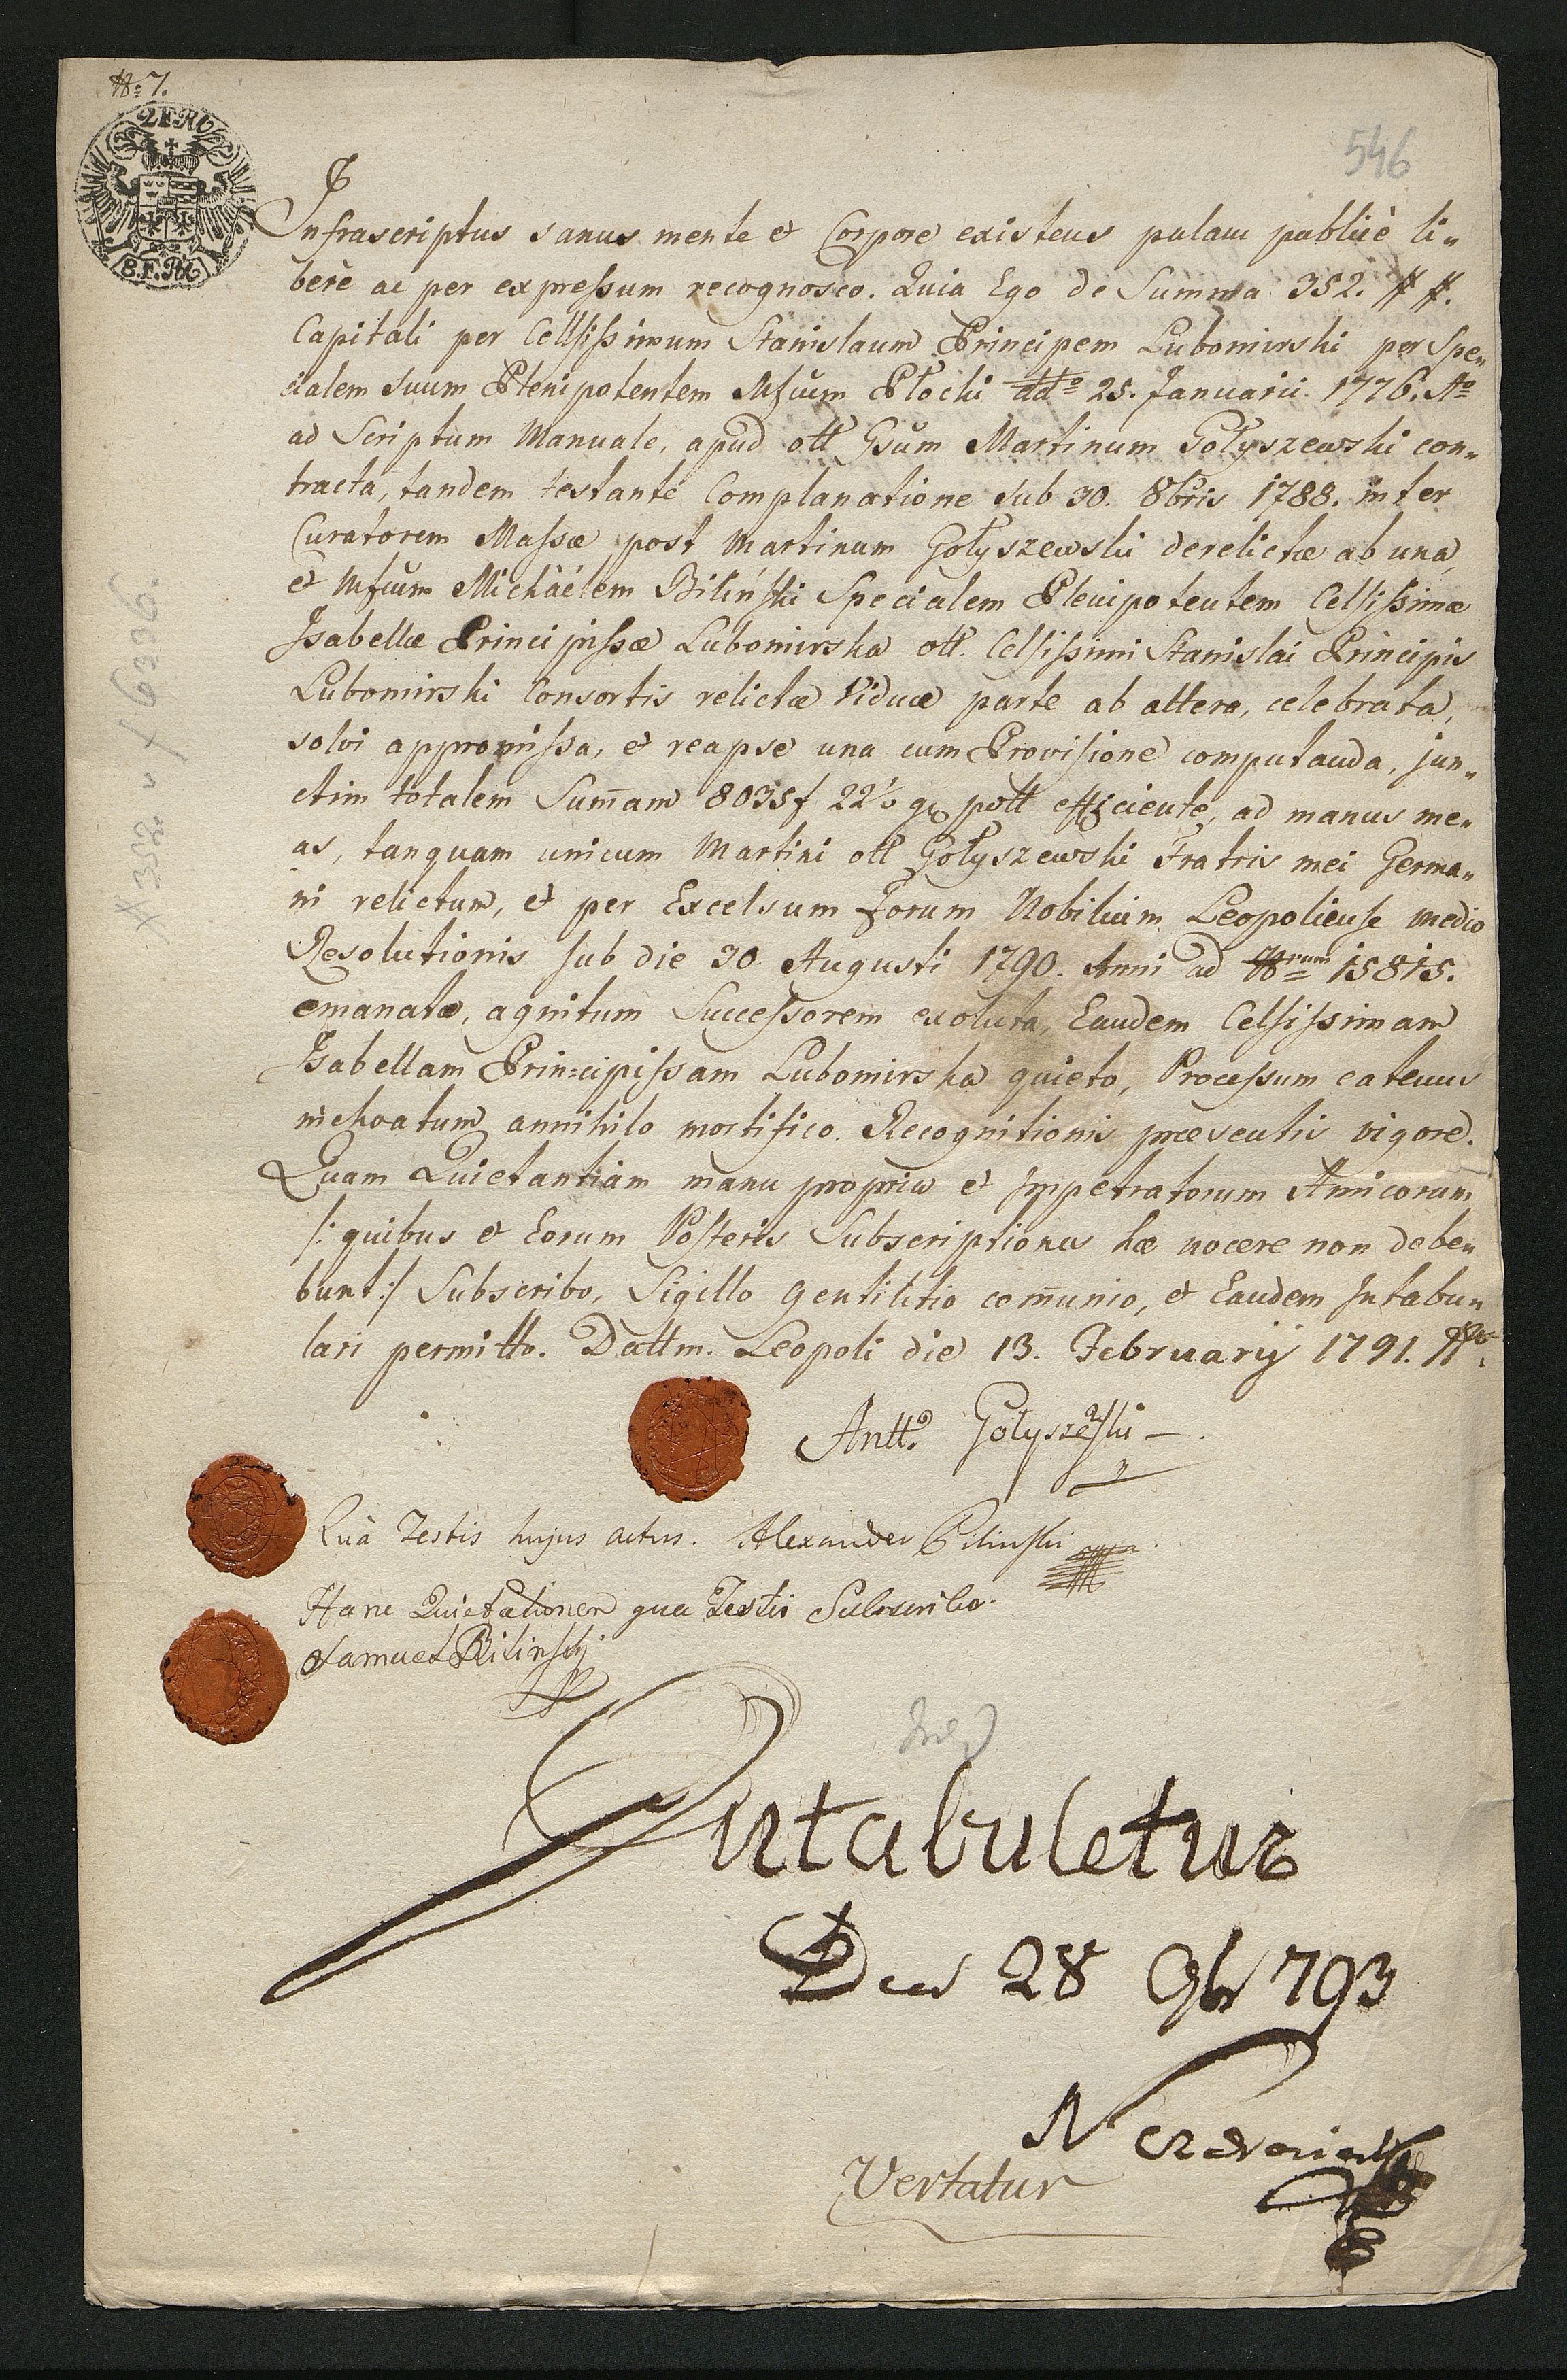 N: 7.
2FRX
8.F.RX
546
Infrascriptus sanus mente et Corpore existens palam publicè li„
berè ac per expreſsum recognosco. Quia Ego de Summa 352. # #.
Capitali per Celſiſsimum Stanislaum Principem Lubomirski per Spe„
cialem suum Plenipotentem Mfcum Płocki ddto 25. Januarii 1776. Ao
ad Scriptum Manuale, apud oll Gsum Martinum Gołyszewski con„
tracta, tandem testante Complanatione sub 30. 8bris 1788. inter
Curatorem Maſsæ post Martinum Gołyszewski derelictæ ab una,
et Mfcum Michàélem Bilińſki Specialem Plenipotentem Celſiſsimæ
Isabellæ Principiſsæ Lubomirska oll. Celſiſsimi Stanislai Principis
Lubomirski Consortis relictæ Viduæ parte ab altera, celebrata,
solvi appromiſsa, et reapse una cum Proviſione computanda, jun„
ctim totalem Summam 8035f 22½ gr poll efficiente, ad manus me„
as, tanquam unicum Martini oll Gołyszewski Fratris mei Germa„
ni relictum, et per Excelsum Forum Nobilium Leopolienſe medio
Resolutionis ſub die 30. Augusti 1790. Anni ad Nrum 15815.
emanatæ, agnitum Succeſsorem exoluta, Eandem Celſiſsimam
Isabellam Prin=cipiſsam Lubomirska quieto, Proceſsum eatenus
inchoatum annihilo mortifico. Recognitionis præsentis vigore.
Quam Quietantiam manu propria et Impetratorum Amicorum
/: quibus et Eorum Poſteris Subscriptiones hæ nocere non debe„
bunt :/ Subscribo, Sigillo Gentilitio communio, et Eandem Intabu„
lari permitto. Dattm. Leopoli die 13. Februarij 1791. Ao
Antt. Gołyszewſki
Quà Testis hujus actus. Alexander Bilinſki
Hanc Quietationem qua Testis Subscribo.
Samuel Bilinſky
Intabuletur
Den 28 9br 793
Vertatur
# 352.
6336.